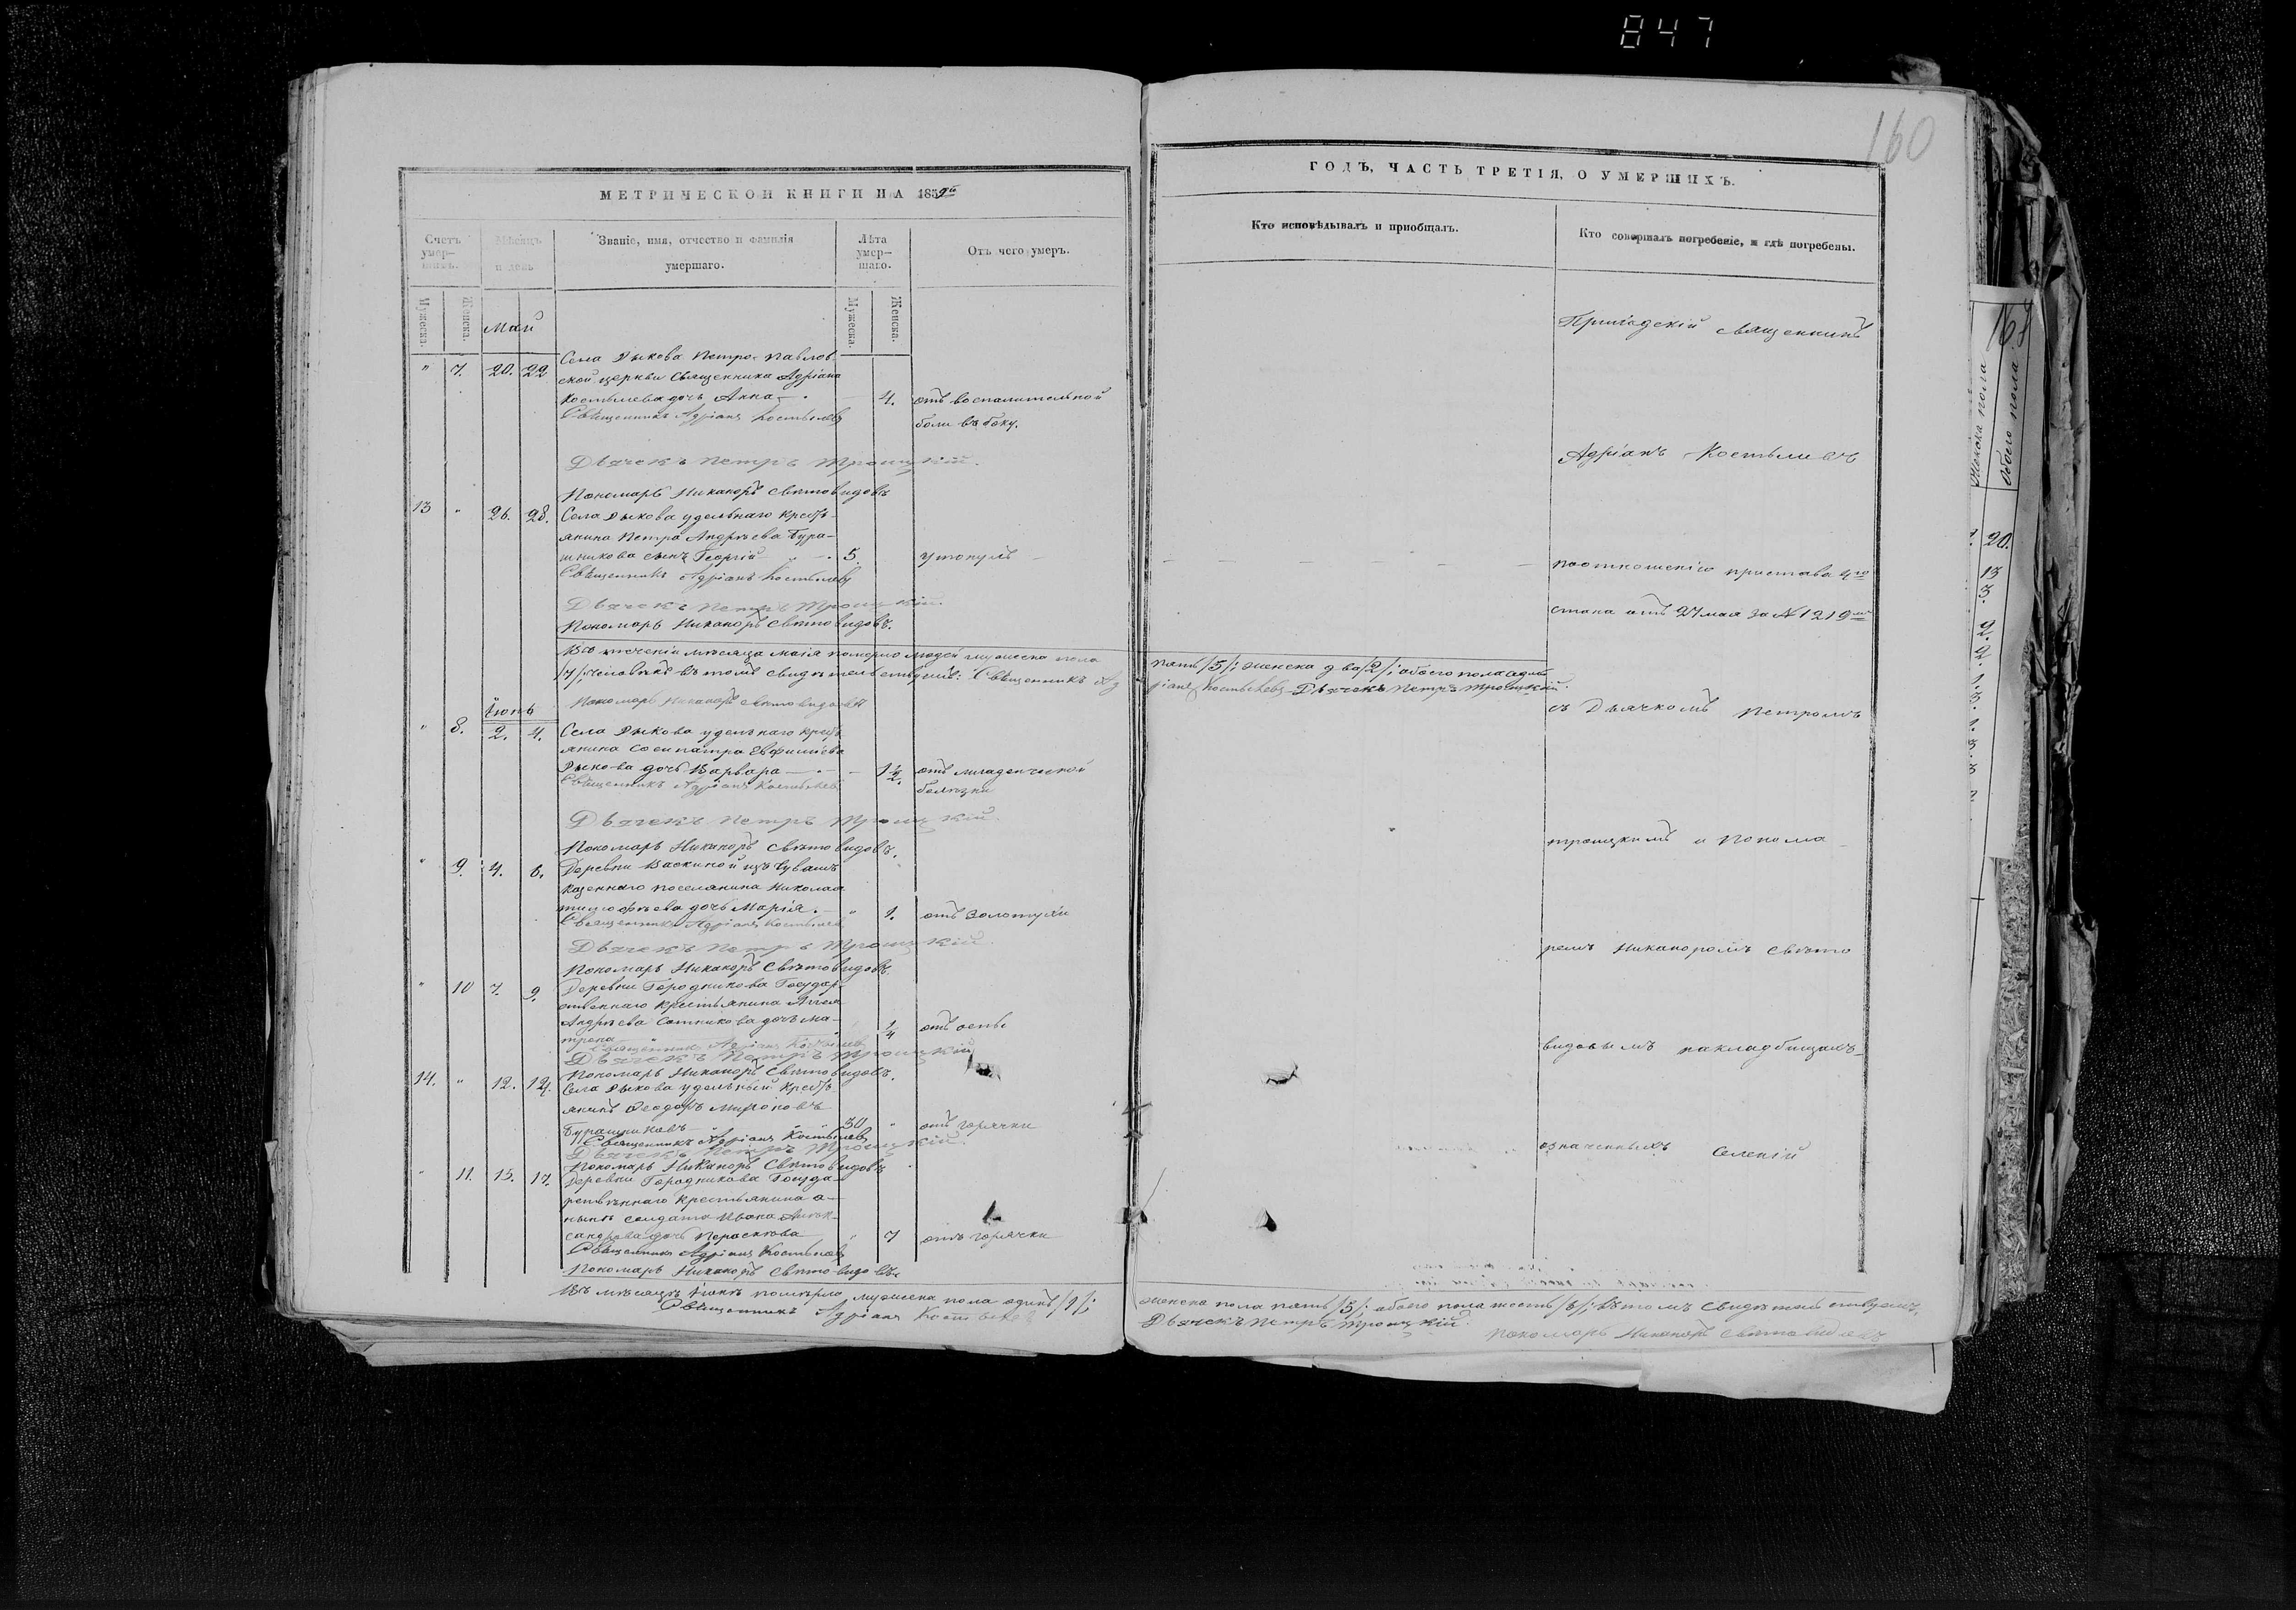 847
160
МЕТРИЧЕСКОЙ КНИГИ НА 1859й
Счетъ умер-шихъ.
Мѣсяцъ и день
Званіе, имя, отчество и фамилія умершаго.
Лѣта умер-шаго.
Отъ чего умеръ.
Мужеска.
Женска.
Мужеска.
Женска.
Май
" 7. 20. 22
Села Рыкова Петро-Павлов-
ской церкви Священника Адріана
Костылева дочь Анна 4. отъ воспалительной
Священникъ Адріанъ Костылевъ боли въ боку.
Дьячекъ Петръ Троицкій.
Пономарь Никаноръ Свѣтовидовъ
13 " 26. 28. Села Рыкова удельнаго крестъ-
янина Петра Андрѣева Бура-
шникова сынъ Георгій 5. утонулъ
Священникъ Адріанъ Костылевъ
Дьячекъ Петръ Троицкій.
Пономарь Никаноръ Свѣтовидовъ.
Въ теченіи мѣсяца маія померло людей мужеска пола
/7/ человѣкъ въ томъ свидѣтельствуемъ: Священникъ Ад
Пономарь Никаноръ Свѣтовидовъ
Іюнь
" 8. 2. 4. Села Рыкова удельнаго крестъ
янина Сосипатра Евфиміева
Рыкова дочь Варвара 1½. отъ младенческой
Священникъ Адріанъ Костылевъ болѣзни
Дьячекъ Петръ Троицкій.
Пономарь Никаноръ Свѣтовидовъ.
" 9. 4. 6. Деревни Васкиной изъ Чувашъ
казеннаго поселянина Николая
Тимофѣева дочь Марія. " 1. отъ золотухи
Священникъ Адріанъ Костылевъ
Дьячекъ Петръ Троицкій.
Пономарь Никаноръ Свѣтовидовъ
" 10 7. 9. Деревни Городникова Государ-
ственнаго крестьянина
Андрѣева Сотникова дочь Ма-
трона ¼ отъ оспы
Священникъ Адріанъ Костылевъ
Дьячекъ Петръ Троицкій
Пономарь Никаноръ Свѣтовидовъ.
14. " 12. 14. Села Рыкова удельный крестъ
янинъ Ѳеодоръ Мироновъ
Бурашниковъ 30 " отъ горячки
Священникъ Адріанъ Костылевъ
Дьячекъ Петръ Троицкій.
Пономарь Никаноръ Свѣтовидовъ
" 11. 15. 17. Деревни Городникова Госуда-
рственнаго крестьянина а-
нынѣ солдата Ивана Алек-
сандрова дочь Параскева " 7 отъ горячки
Священникъ Адріанъ Костылевъ
Пономарь Никаноръ Свѣтовидовъ
Въ мѣсяцѣ Іюнѣ померло мужеска пола одинъ /1/;
Священникъ Адріанъ Костылевъ
ГОДЪ, ЧАСТЬ ТРЕТІЯ, О УМЕРШИХЪ.
Кто исповѣдывалъ и пріобщалъ.
Кто совершалъ погребеніе, и гдѣ погребены.
священникъ
Адріанъ Костылевъ
по отношенію пристава 4го
стана отъ 27 мая за № 1219м
пять /5/; женска два /2/; обоего пола
ріанъ Костылевъ Дьячекъ Петръ Троицкій.
съ Дьячкомъ Петромъ
Троицкимъ и Понома
ремъ Никаноромъ Свѣто
видовымъ на кладбищахъ
означенныхъ Селеній
женска пола пять /5/; обоего пола шесть /6/; въ томъ свидѣтельствуемъ.
Дьячекъ Петръ Троицкій.
Пономарь Никаноръ Свѣтовидовъ
Женска пола
обоего пола
20.
13
3.
2.
2.